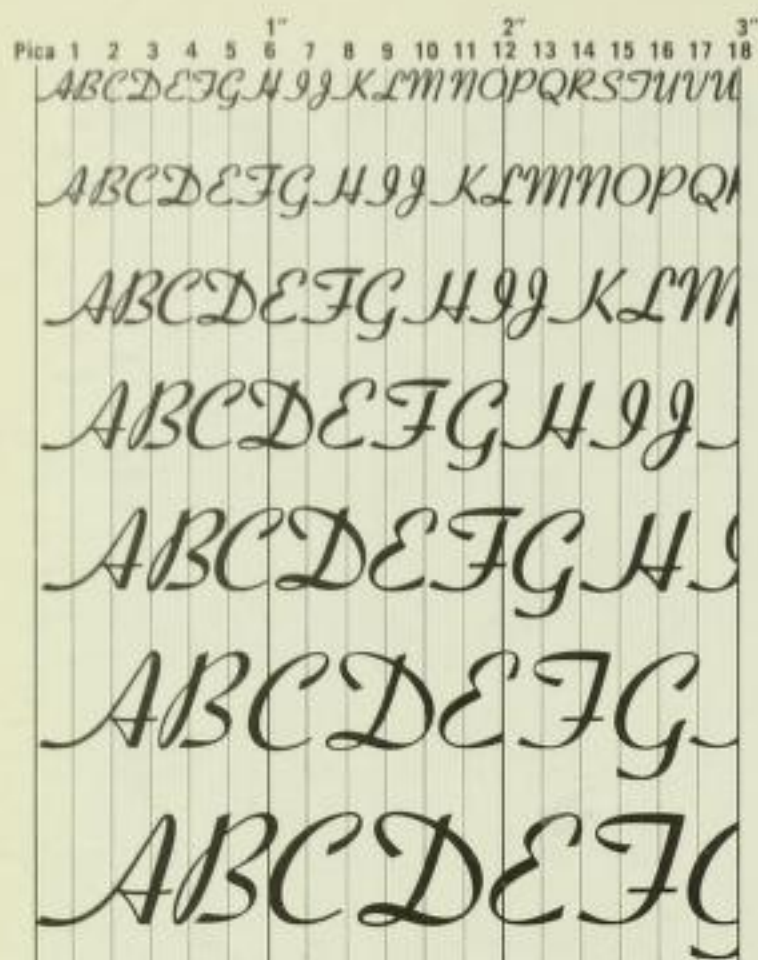 1" 2" 3"
Pica 1 2 3 4 5 6 7 8 9 10 11 12 13 14 15 16 17 18
ABCDEFGHIJKLMNOPQRSTUVU
ABCDEFGHIJKLMNOPQ
ABCDEFGHIJKLM
ABCDEFGHIJ
ABCDEFGH
ABCDEFG
ABCDEF